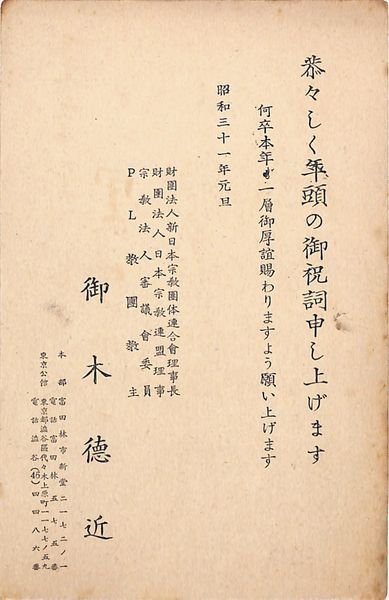 恭々しく年頭の御祝詞申し上げます
何卒本年も一層御厚誼賜わりますよう願い上げます
昭和三十一年元旦
財團法人新日本宗敎團体連合會理事長
財團法人日本宗敎連盟理事
宗敎法人審議會委員
PL敎團敎主
御木德近
本部 富田林市新堂二一七二ノ一
電話富田林五七五番
東京公館 東京都澁谷區代々木上原町一一七七ノ五九
電話澁谷(46)四四八六番